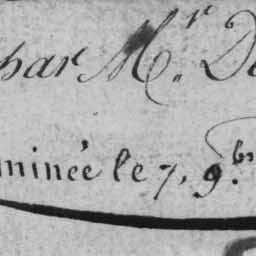 par Mr. D
minée le 7, 9br